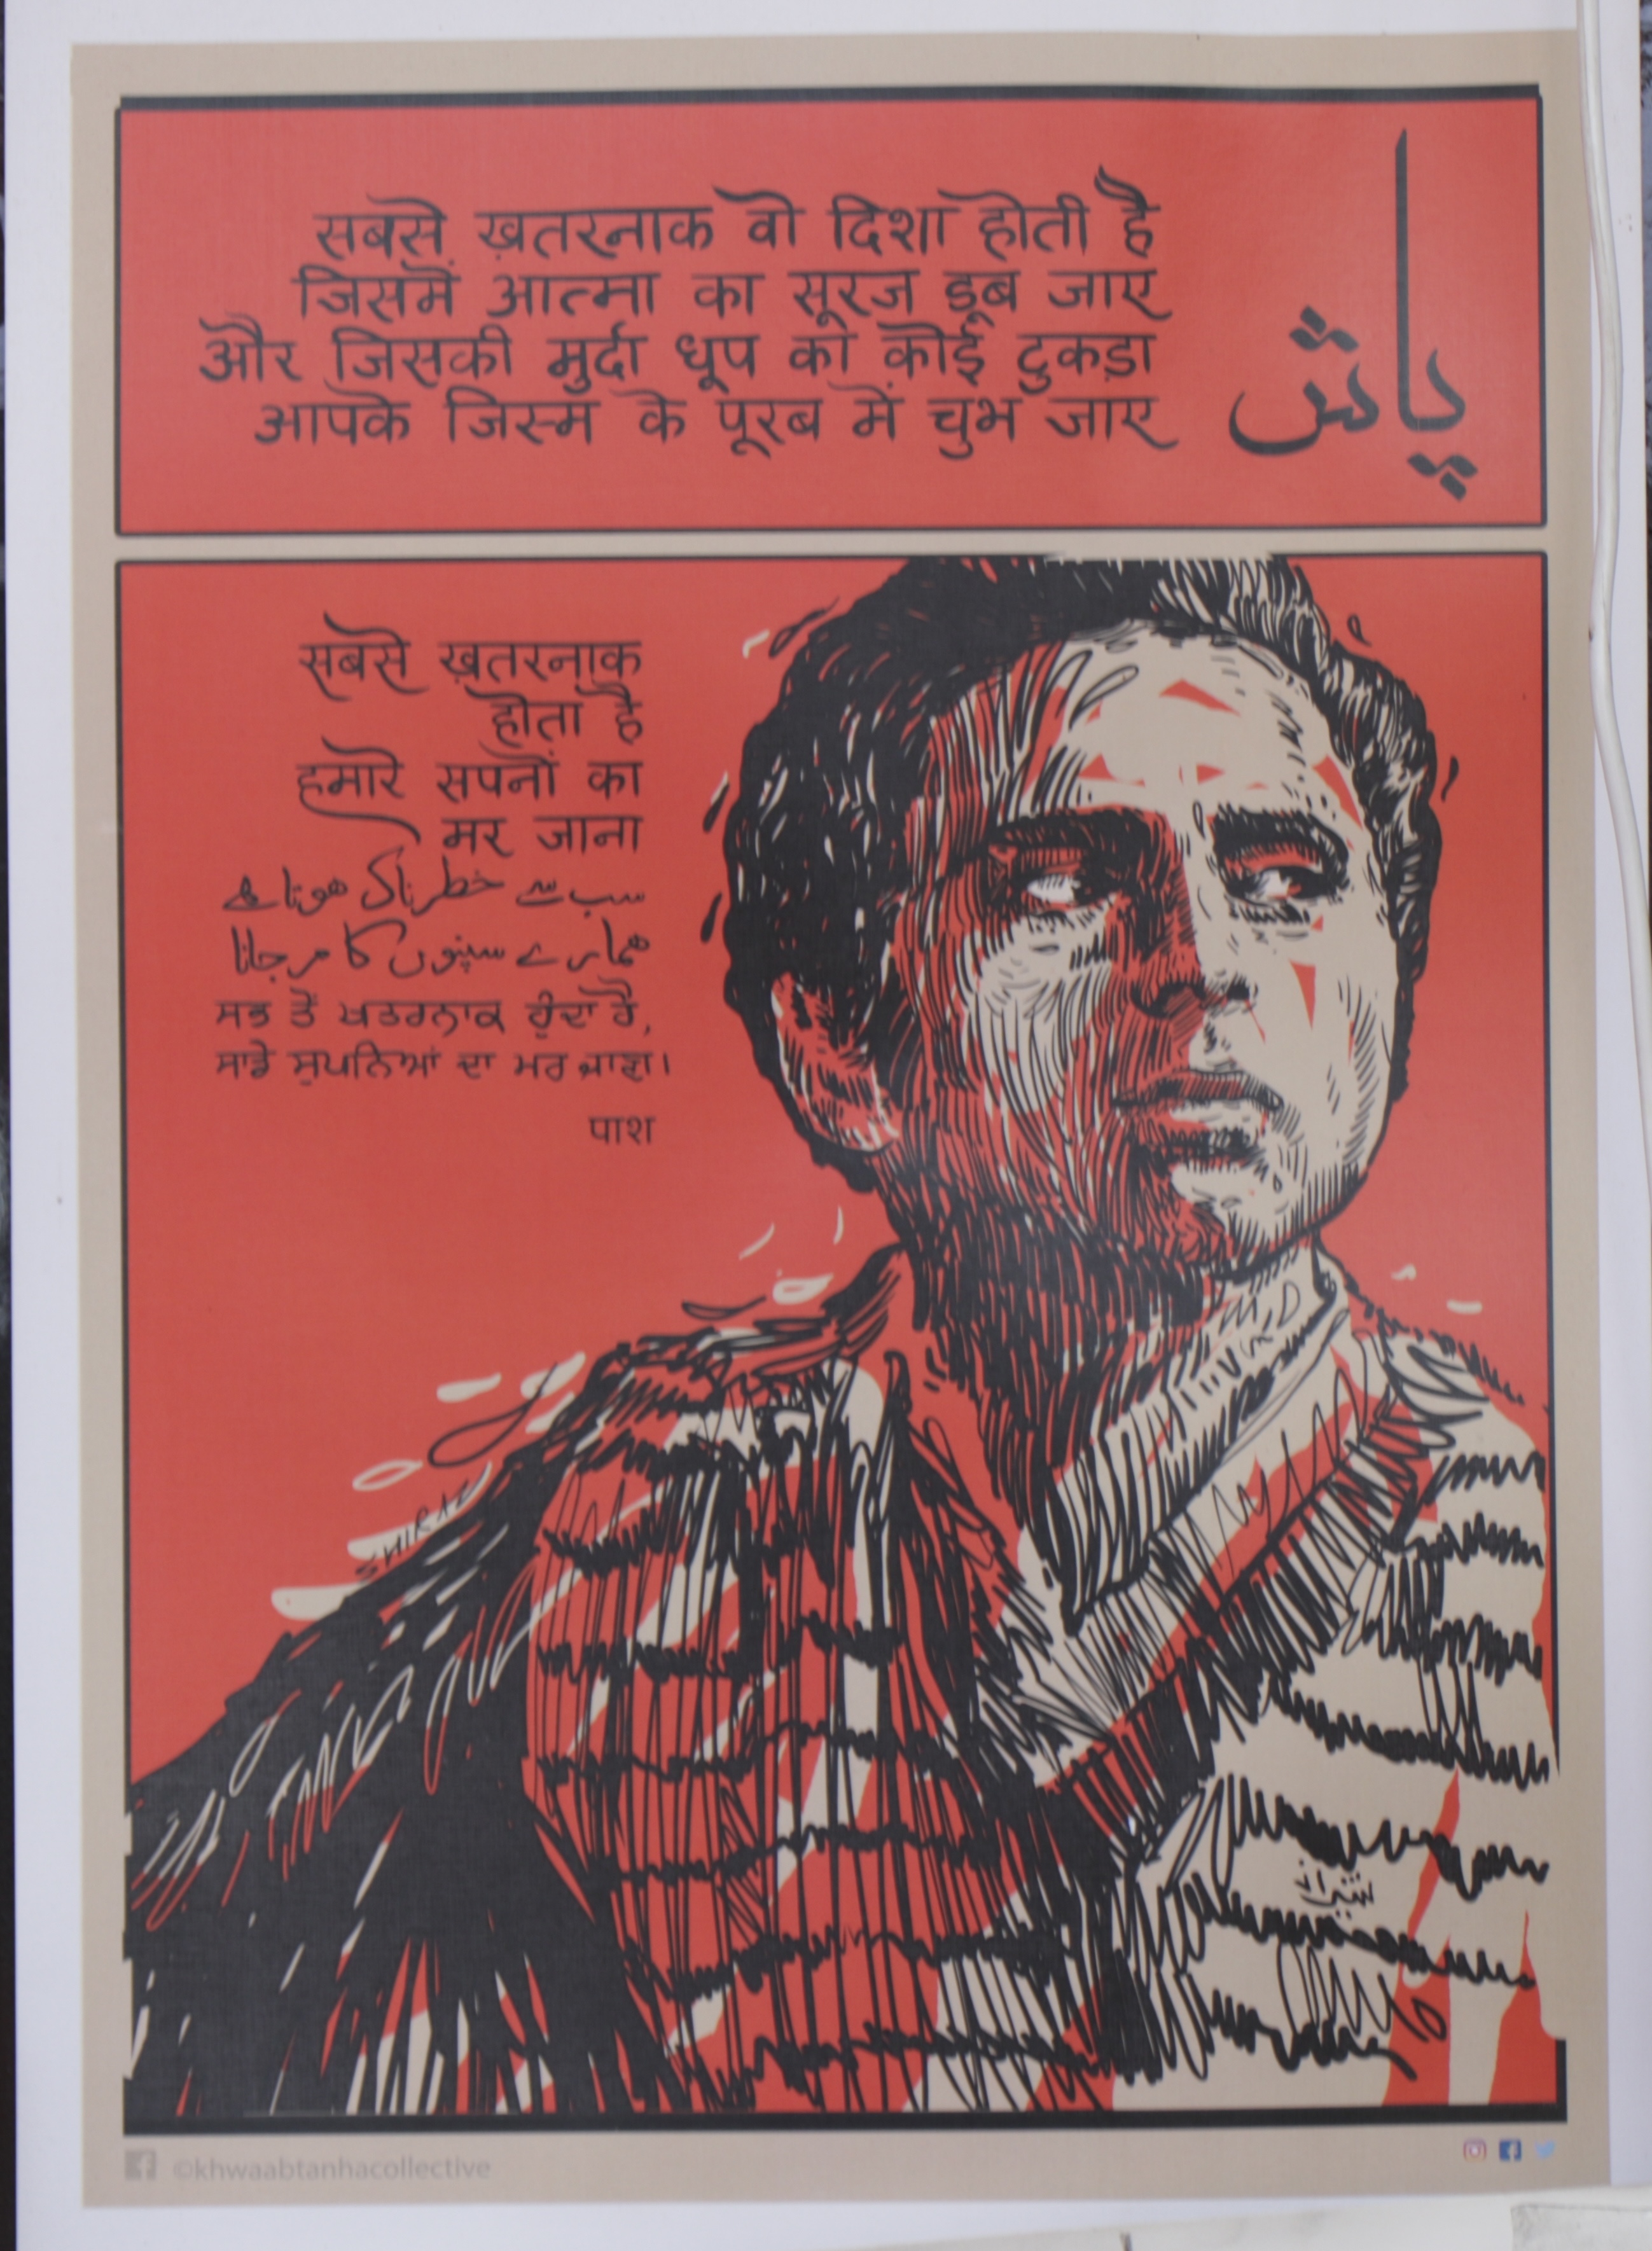 सबसे ख़तरनाक वो दिशा होती है
जिसमें आत्मा का सूरज डूब जाए
और जिसकी मुर्दा धूप का कोई टुकड़ा
आपके जिस्म के पूरब में चुभ जाए
پاش
सबसे ख़तरनाक
होता है
हमारे सपनों का
मर जाना
سب سے خطرناک ہوتا ہے
ہمارے سپنوں کا مر جانا
ਸਭ ਤੋਂ ਖ਼ਤਰਨਾਕ ਹੁੰਦਾ ਹੈ,
ਸਾਡੇ ਸੁਪਨਿਆਂ ਦਾ ਮਰ ਜਾਣਾ।
पाश
SHIRAZ
شیراز
©khwaabtanhacollective